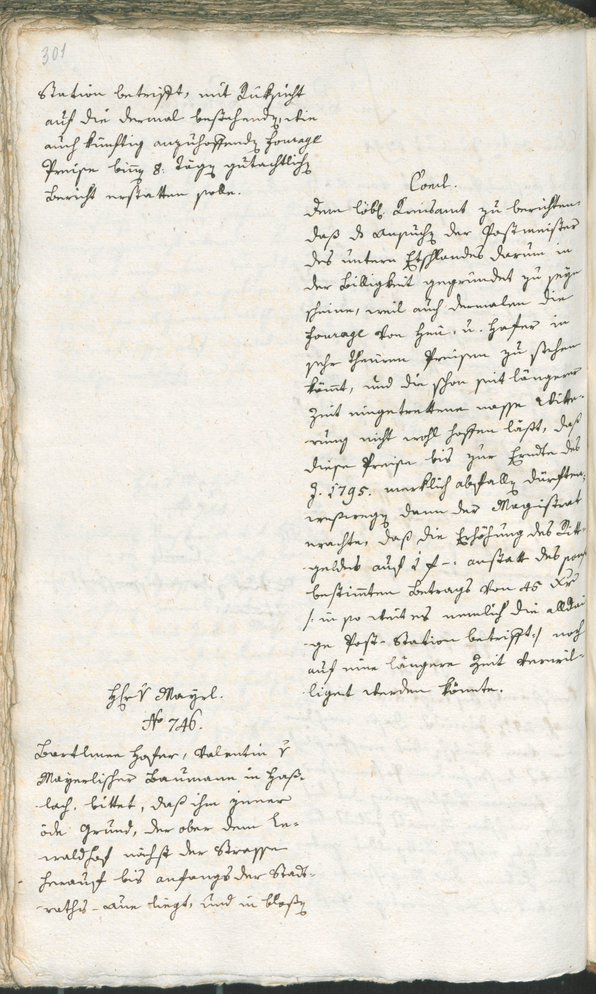 301
Station betrifft, mit Rüksicht
auf die dermal bestehende, wie
auch künftig anzuhoffende Fourage
Preise binnen 8. Tägen gutächtlichen
Bericht erstatten solle.
Concl.
Dem löbl. Kreisamt zu berichten
daß das Ansuchen der Postmeister
des untern Etschlandes darum in
der Billigkeit gegründet zu seyn
scheine, weil auch dermalen die
Fourage von Heu, u. Hafer in
sehr theuren Preisen zu stehen
kömmt, und die schon seit längerer
Zeit eingetrettene nasse Witte-
rung nicht wohl hoffen läßt, daß
diese Preise bis zur Erndte des
J. 1795. merklich abfallen dürften,
weßwegen dann der Magistrat
erachte, daß die Erhöhung des Ritt-
geldes auf 1 f –. anstatt des sonst
bestimmten Betrags von 45 Xr
/: in so weit es nemlich die alldai-
ge Post-Station betrifft :/ noch
auf eine längere Zeit verwil-
liget werden könnte.
Hr v Mayrl.
No 746.
Bartlmee Hofer, Valentin v
Mayrlischer Baumann in Haß-
lach, bittet, daß ihm jener
öde Grund, der ober dem
waldhof nächst der Strasse
herauf bis anfangs der Stadt-
raths-Aue liegt, und in bloßen